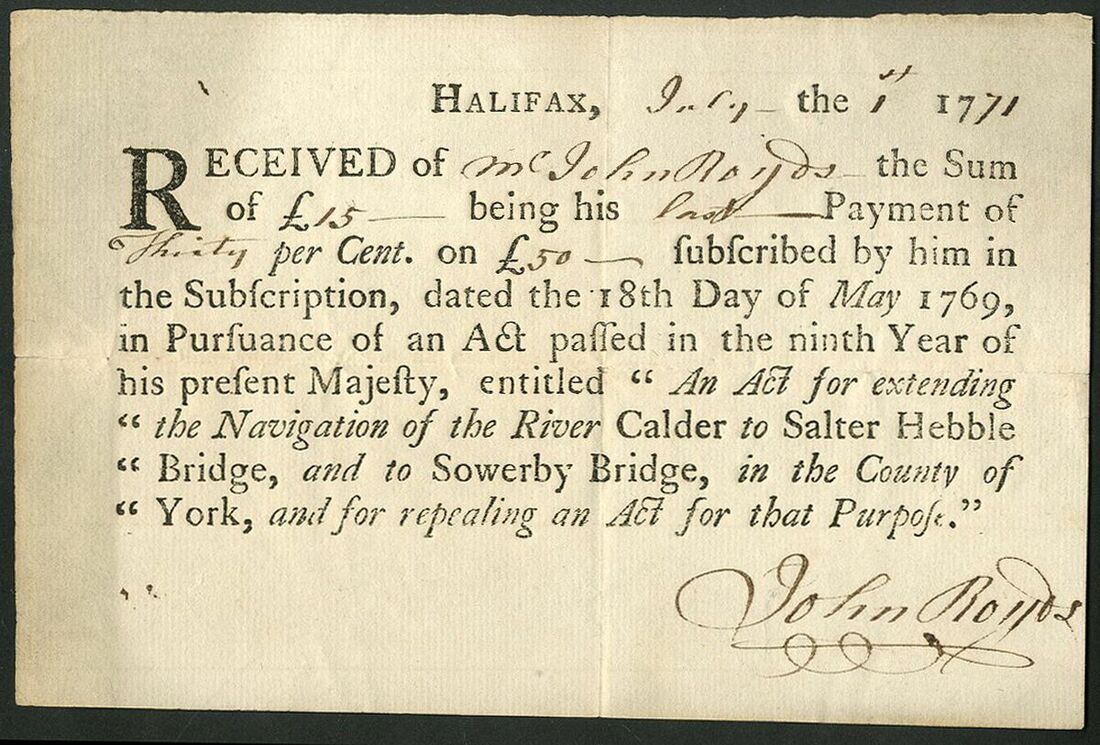 HALIFAX, July the 1st 1771
RECEIVED of Mr John Royds the Sum
of £15 being his last Payment of
Thirty per Cent. on £50 ſubſcribed by him in
the Subſcription, dated the 18th Day of May 1769,
in Purſuance of an Act paſſed in the ninth Year of
his preſent Majeſty, entitled “ An Act for extending
“ the Navigation of the River Calder to Salter Hebble
“ Bridge, and to Sowerby Bridge, in the County of
“ York, and for repealing an Act for that Purpoſe.”
John Royds